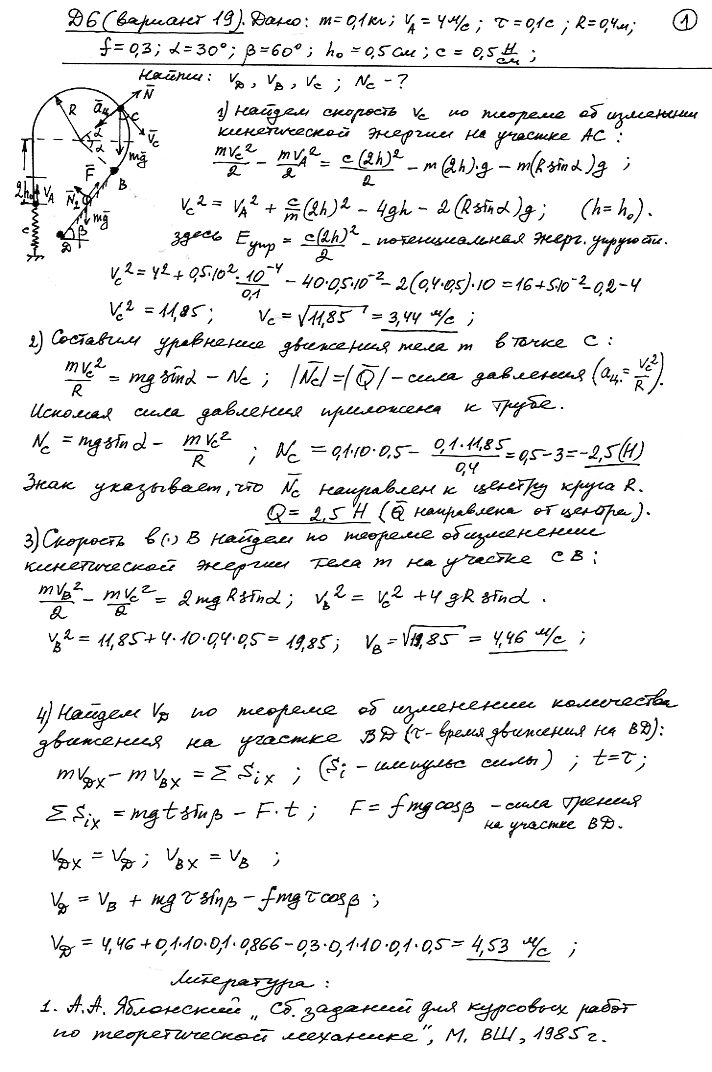 Д6 (вариант 19). Дано: m=0,1кг; V_A = 4м/с; τ=0,1с; R=0,4м; ①
f=0,3; α=30°; β=60°; h₀=0,5см; c=0,5 Н/см;
Найти: V_D, V_B, V_C; N_C - ?
R ā_ц N̄ C V̄_C α α mḡ F̄ B N̄₂ mḡ 2h₀ V_A c D β
1) Найдем скорость V_C по теореме об изменении
кинетической энергии на участке AC:
mV_C²/2 - mV_A²/2 = c(2h)²/2 - m(2h)·g - m(R sinα)g ;
V_C² = V_A² + c/m (2h)² - 4gh - 2(R sinα)g; (h=h₀).
здесь E_упр = c(2h)²/2 - потенциальная энерг. упругости.
V_C² = 4² + 0,5·10²·10⁻⁴/0,1 - 40·0,5·10⁻² - 2(0,4·0,5)·10 = 16+5·10⁻²-0,2-4
V_C² = 11,85; V_C = √11,85 = 3,44 м/с ;
2) Составим уравнение движения тела m в точке C :
mV_C²/R = mg sinα - N_C ; |N̄_C| = |Q̄| - сила давления (a_ц = V_C²/R).
Искомая сила давления приложена к трубе.
N_C = mg sinα - mV_C²/R ; N_C = 0,1·10·0,5 - 0,1·11,85/0,4 = 0,5-3 = -2,5(Н)
Знак указывает, что N̄_C направлен к центру круга R.
Q = 2,5 Н (Q̄ направлена от центра).
3) Скорость в (·) B найдем по теореме об изменении
кинетической энергии тела m на участке CB :
mV_B²/2 - mV_C²/2 = 2mgR sinα; V_B² = V_C² + 4gR sinα .
V_B² = 11,85 + 4·10·0,4·0,5 = 19,85; V_B = √19,85 = 4,46 м/с ;
4) Найдем V_D по теореме об изменении количества
движения на участке BD (τ - время движения на BD):
mV_DX - mV_BX = Σ S_iX ; (S_i - импульс силы) ; t=τ;
Σ S_iX = mgt sinβ - F·t ; F = fmg cosβ - сила трения
на участке BD.
V_DX = V_D ; V_BX = V_B ;
V_D = V_B + mgτ sinβ - fmgτ cosβ ;
V_D = 4,46 + 0,1·10·0,1·0,866 - 0,3·0,1·10·0,1·0,5 = 4,53 м/с ;
Литература :
1. А.А. Яблонский „Сб. заданий для курсовых работ
по теоретической механике", М. ВШ, 1985г.